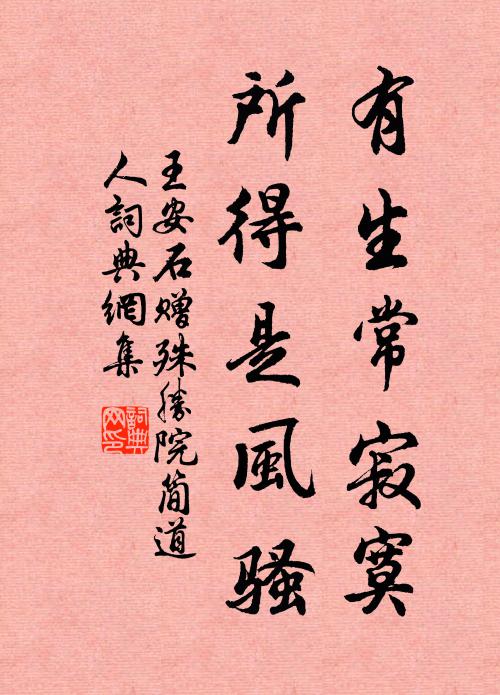 有生常寂寞
所得是風騷
王安石贈殊勝院簡道
人詞典網集
詞典網印